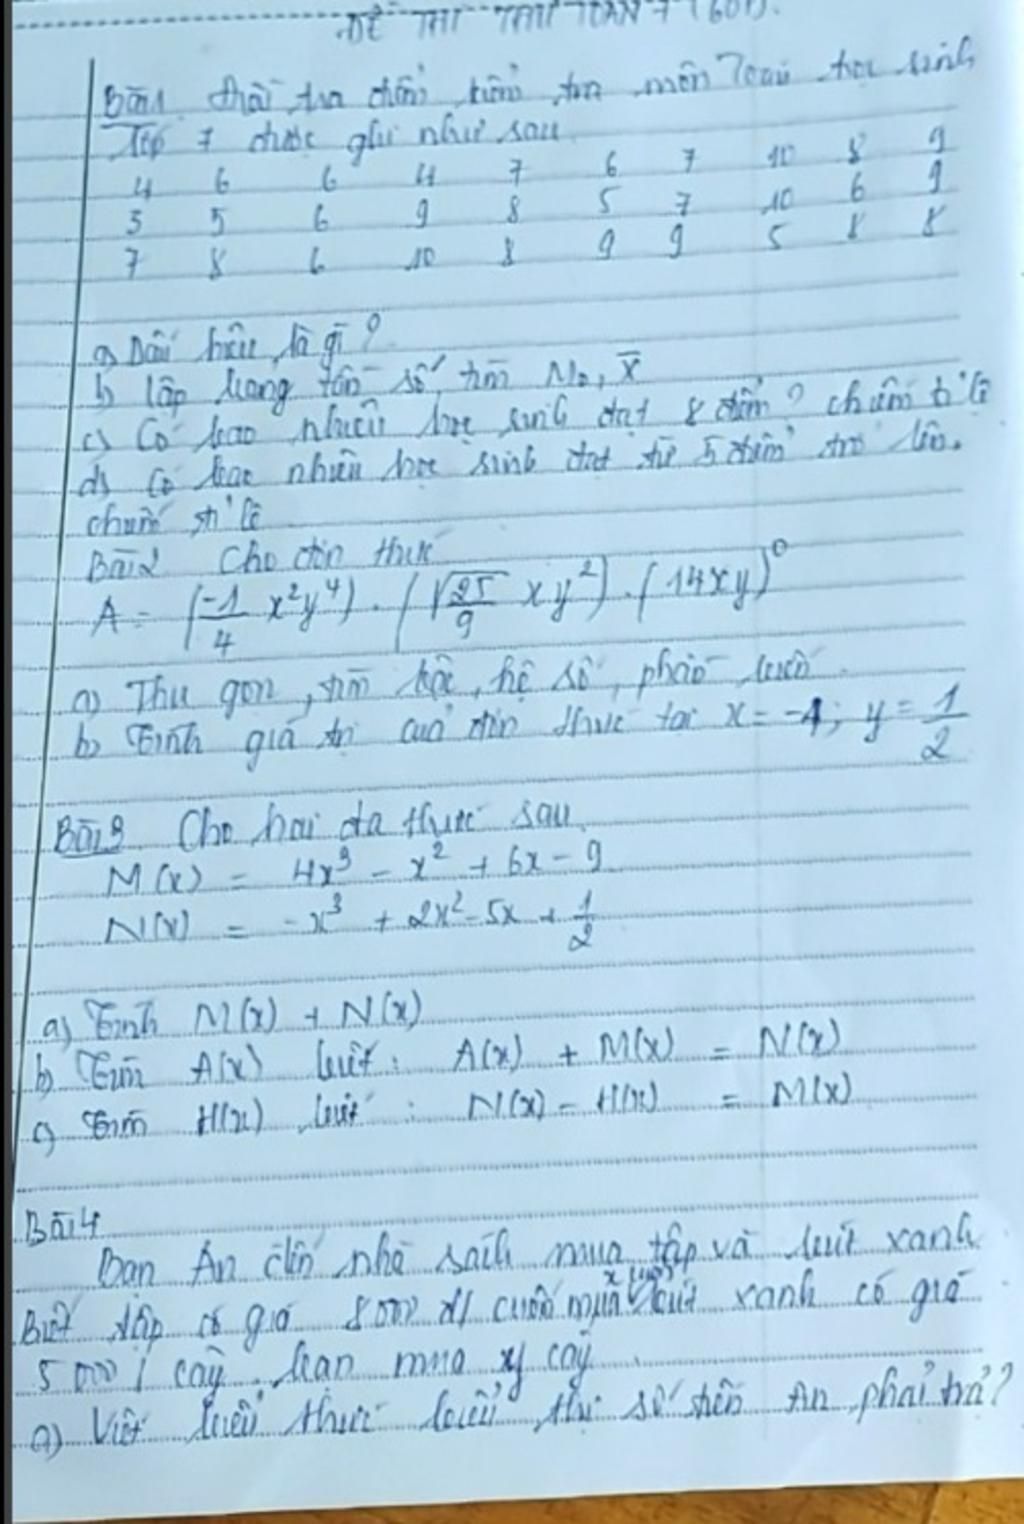 ĐỀ THI THỬ TOÁN 7 (60P).
Bài 1. điểm kiểm tra môn Toán học sinh
lớp 7 được ghi như sau
4 6 6 4 7 6 7 10 8 9
5 5 6 9 8 5 7 10 6 9
7 8 6 10 8 9 9 5 8 8
a) Dấu hiệu là gì?
b) lập bảng tần số, tìm M₀, x̄
c) Có bao nhiêu học sinh đạt 8 điểm? chiếm tỉ lệ
d) Có bao nhiêu học sinh đạt từ 5 điểm trở lên.
chiếm tỉ lệ
Bài 2 Cho đơn thức
A = (-1/4 x²y⁴) . (√25/9 xy²) . (14xy)⁰
a) Thu gọn, tìm bậc, hệ số, phần biến.
b) Tính giá trị của đơn thức tại x = -4; y = 1/2
Bài 3. Cho hai đa thức sau.
M(x) = 4x³ - x² + 6x - 9
N(x) = -x³ + 2x² - 5x + 1/2
a) Tính M(x) + N(x)
b) Tìm A(x) biết: A(x) + M(x) = N(x)
c) Tìm H(x) biết: N(x) - H(x) = M(x)
Bài 4
Bạn An đến nhà sách mua tập và bút xanh
Biết tập có giá 8000 đ/ cuốn mua x bút xanh có giá
5000/ cây. bạn mua y cây.
a) Viết biểu thức biểu thị số tiền An phải trả?